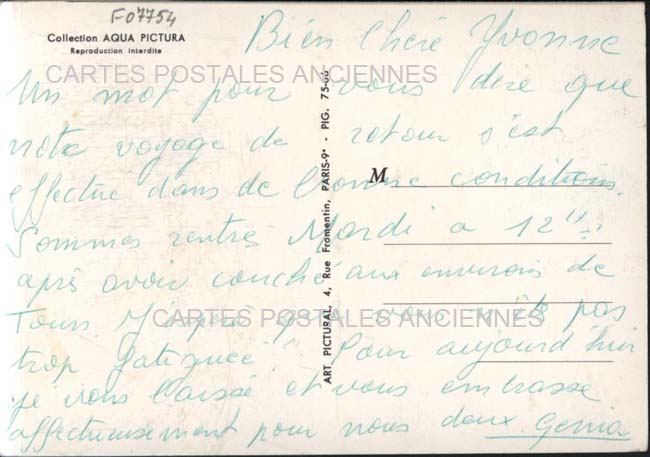 F07754
Collection AQUA PICTURA
Reproduction interdite
CARTES POSTALES ANCIENNES
Bien Chère Yvonne
Un mot pour vous dire que
notre voyage de retour s'est
effectué dans de bonne conditions.
Sommes rentrés Mardi a 12 H
après avoir couché aux environs de
Tours. J'espère que vous n'êts pas
trop fatiguée! Pour aujourd'hui
je vous laisse et vous embrasse
affectueusement pour nous deux. Genia
M
ART PICTURAL, 4, Rue Fromentin, PARIS-9e - PIG. 75-66
CARTES POSTALES ANCIENNES